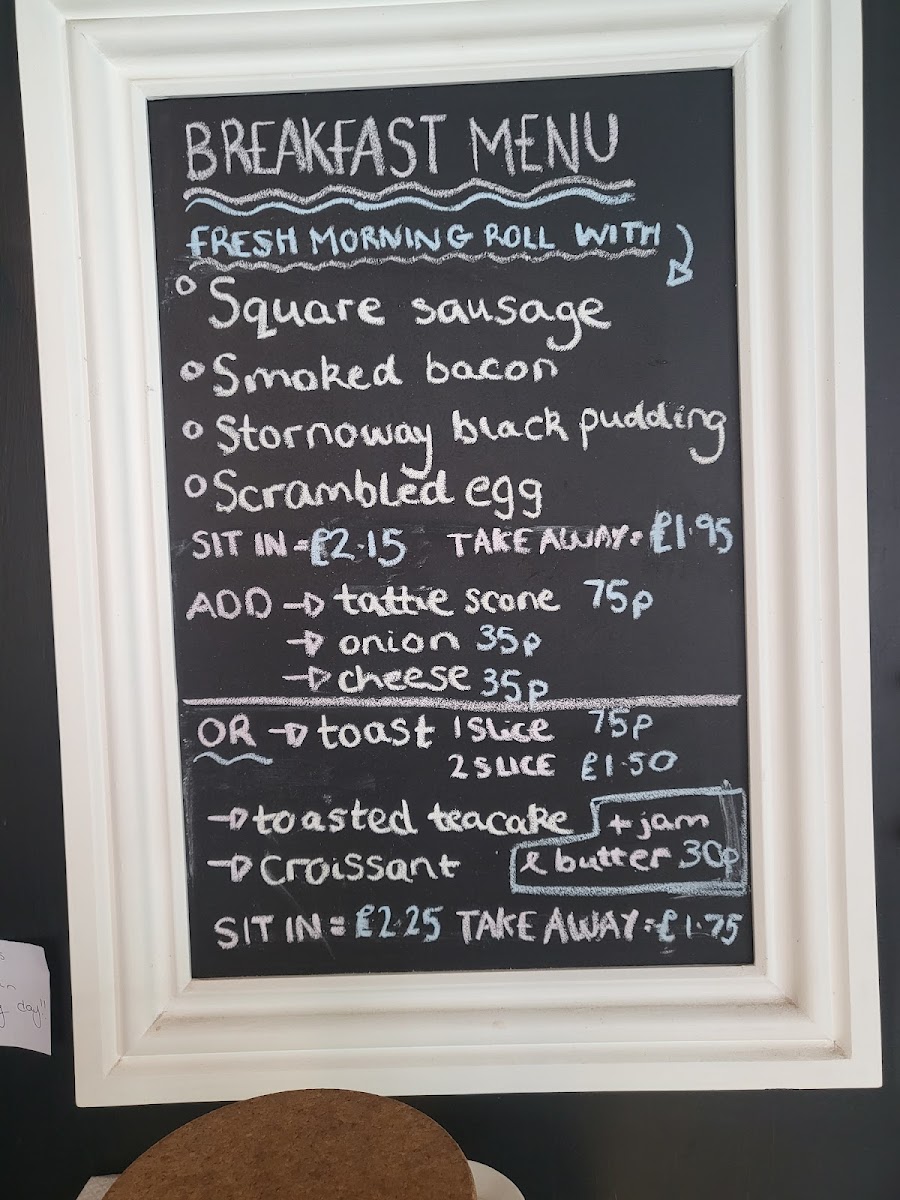 BREAKFAST MENU
FRESH MORNING ROLL WITH
Square sausage
Smoked bacon
Stornoway black pudding
Scrambled egg
SIT IN = £2.15 TAKE AWAY: £1.95
ADD → tattie scone 75p
→ onion 35p
→ cheese 35p
OR → toast 1 slice 75p
2 SLICE £1.50
→ toasted teacake + jam
→ Croissant & butter 30p
SIT IN = £2.25 TAKE AWAY: £1.75
day!!